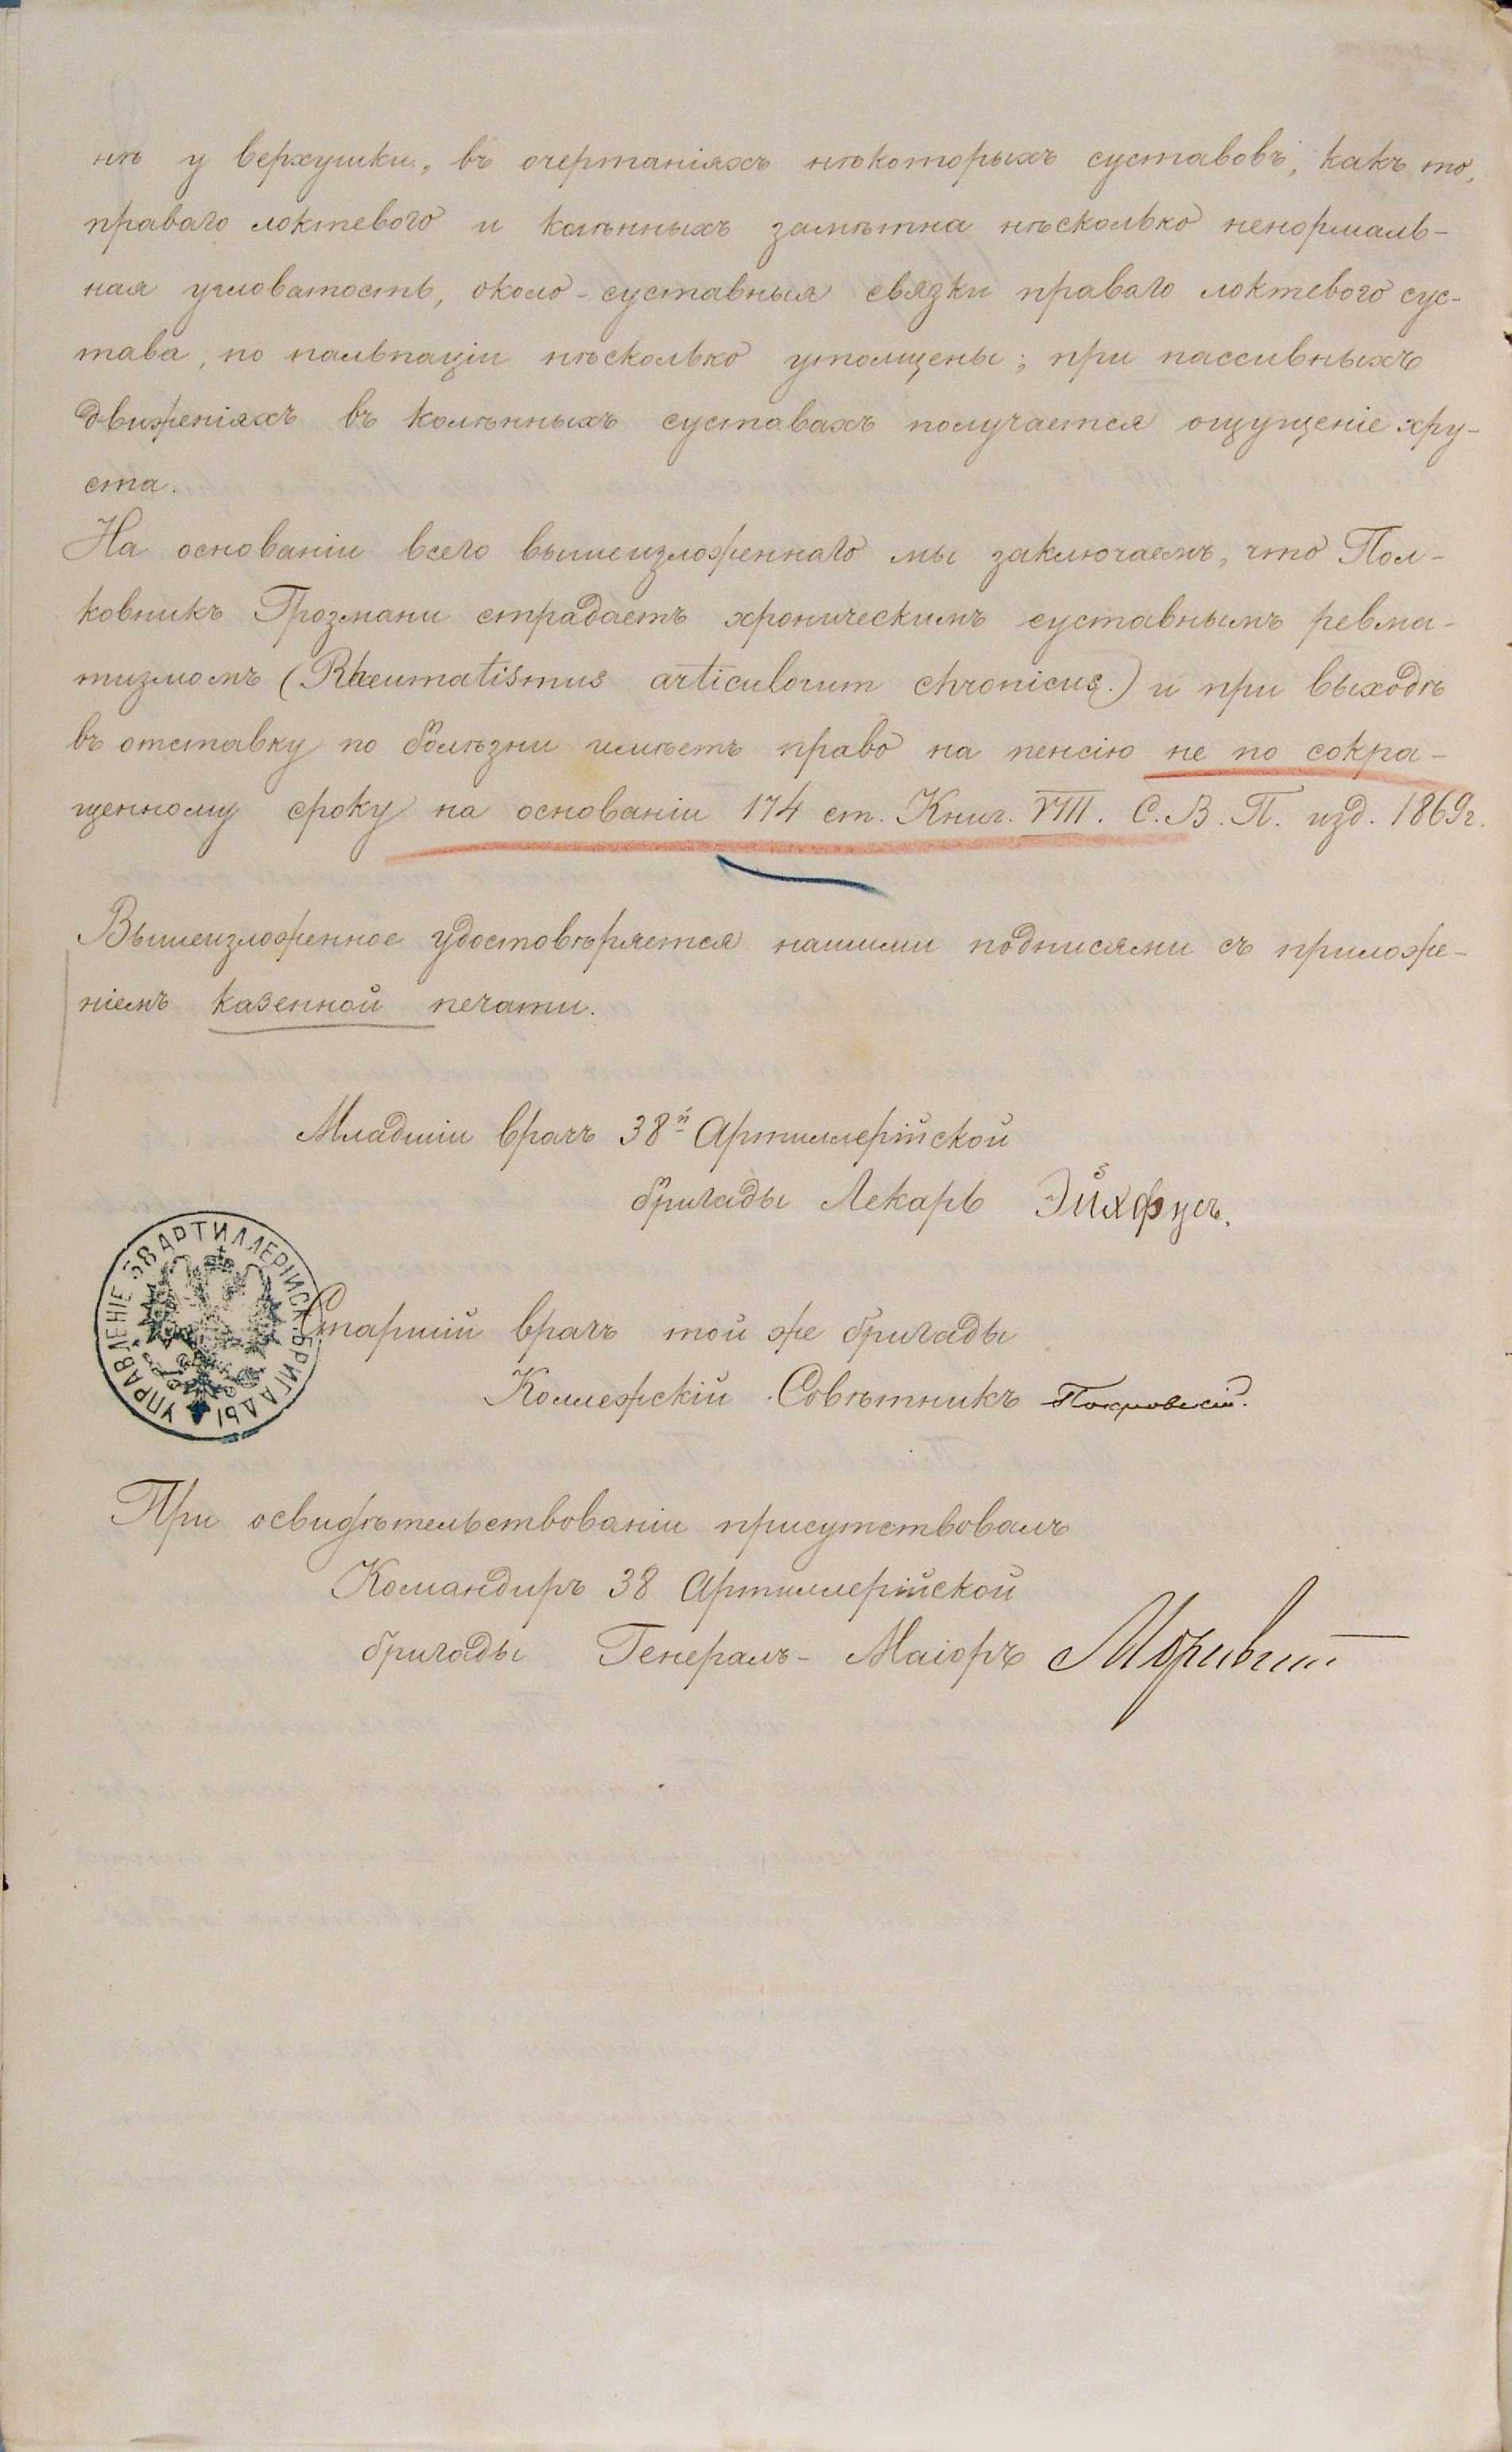 нѣ у верхушки, въ очертаніяхъ нѣкоторыхъ суставовъ, какъ то,
праваго локтевого и колѣнныхъ замѣтна нѣсколько ненормаль-
ная угловатость, около-суставныя связки праваго локтевого сус-
тава, по пальпаціи нѣсколько утолщены; при пассивныхъ
движеніяхъ въ колѣнныхъ суставахъ получается ощущеніе хру-
ста.
На основаніи всего вышеизложеннаго мы заключаемъ, что Пол-
ковникъ Грозмани страдаетъ хроническимъ суставнымъ ревма-
тизмомъ (Rheumatismus articulorum chronicus.) и при выходѣ
въ отставку по болѣзни имѣетъ право на пенсію не по сокра-
щенному сроку на основаніи 174 ст. Книг. VIII. С. В. П. изд. 1869г.
Вышеизложенное удостовѣряется нашими подписями съ приложе-
ніемъ казенной печати.
Младшій врачъ 38й Артиллерійской
бригады Лекарь Эйхфусъ.
УПРАВЛЕНІЕ 38 АРТИЛЛЕРІЙСК. БРИГАДЫ
Старшій врачъ той же бригады
Коллежскій Совѣтникъ Покровскій.
При освидѣтельствованіи присутствовалъ
Командиръ 38 Артиллерійской
бригады Генералъ-Маіоръ